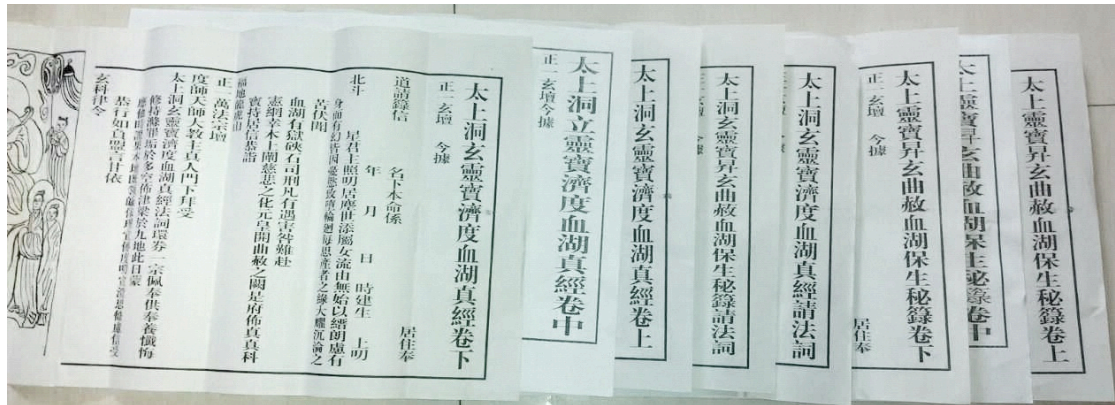 太上靈寶昇玄曲赦血湖保生秘籙卷上
太上靈寶昇玄曲赦血湖保生秘籙卷中
太上靈寶昇玄曲赦血湖保生秘籙卷下
正一玄壇 今據
居住奉
太上洞玄靈寶濟度血湖真經請法詞
太上洞玄靈寶昇玄曲赦血湖保生秘籙請法詞
太上洞玄靈寶濟度血湖真經卷上
太上洞立靈寶濟度血湖真經卷中
正一玄壇今據
太上洞玄靈寶濟度血湖真經卷下
正一玄壇 今據
居住奉
道請籙信 名下本命係
年 月 日 時建生 上明
北斗 星君主照明居塵世添屬女流由無始以緡朗慮有
苦伏聞
血湖有獄硤石司刑凡有遇害咎難赴
憲綱幸木上開慈悲之化元皇開曲赦之闕是府佈真真科
寶持居信恭詣
福地龍虎山
正一萬法宗壇
度師天師大教主真人門下拜受
太上洞玄靈寶濟度血湖真經法詞環券一宗佩奉供奉養懺悔
恭行如負盟言甘依
玄科律令